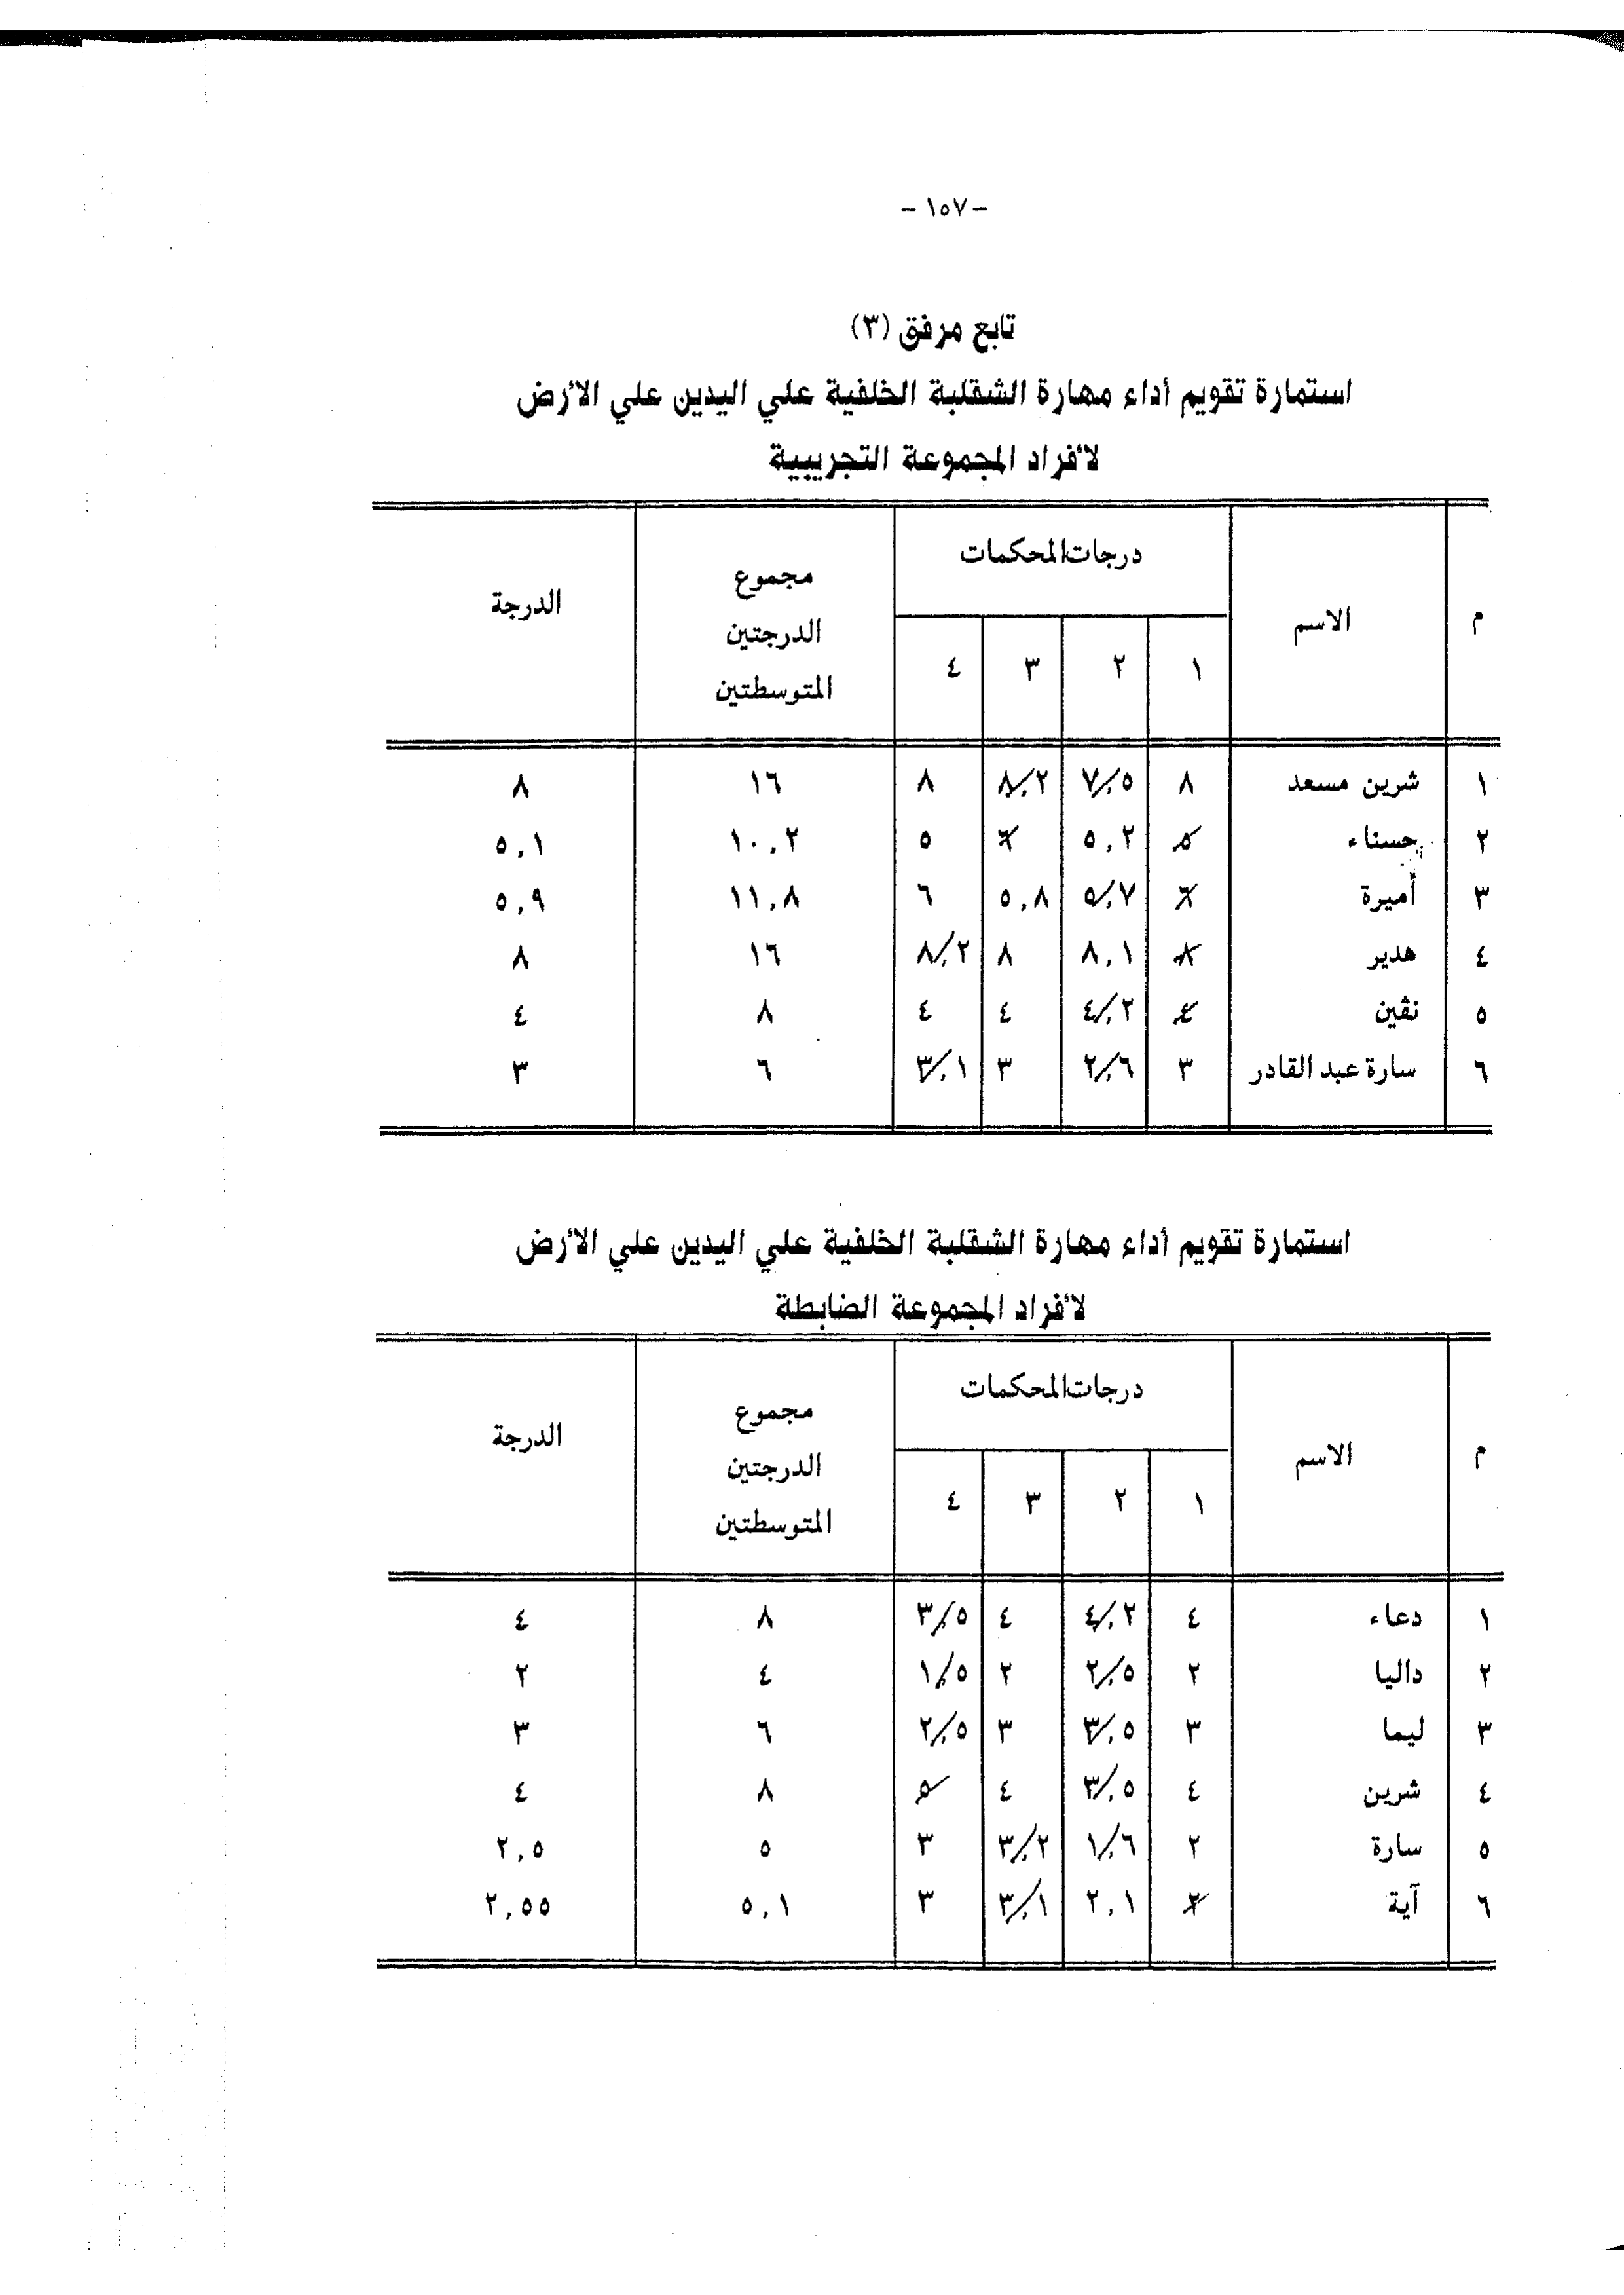 - ١٥٧ -
تابع مرفق (٣)
استمارة تقويم أداء مهارة الشقلبة الخلفية علي اليدين علي الأرض
لأفراد المجموعة التجريبية
م الاسم درجات المحكمات مجموع الدرجتين المتوسطتين الدرجة
١ ٢ ٣ ٤
١ شرين مسعد ٨ ٧,٥ ٨,٢ ٨ ١٦ ٨
٢ حسناء ٥ ٥,٢ ٦ ٥ ١٠,٢ ٥,١
٣ أميرة ٦ ٥,٧ ٥,٨ ٦ ١١,٨ ٥,٩
٤ هدير ٨ ٨,١ ٨ ٨,٢ ١٦ ٨
٥ نڤين ٤ ٤,٢ ٤ ٤ ٨ ٤
٦ سارة عبد القادر ٣ ٢,٦ ٣ ٣,١ ٦ ٣
استمارة تقويم أداء مهارة الشقلبة الخلفية علي اليدين علي الأرض
لأفراد المجموعة الضابطة
م الاسم درجات المحكمات مجموع الدرجتين المتوسطتين الدرجة
١ ٢ ٣ ٤
١ دعاء ٤ ٤,٢ ٤ ٣,٥ ٨ ٤
٢ داليا ٢ ٢,٥ ٢ ١,٥ ٤ ٢
٣ ليما ٣ ٣,٥ ٣ ٢,٥ ٦ ٣
٤ شرين ٤ ٣,٥ ٤ ٥ ٨ ٤
٥ سارة ٢ ١,٦ ٣,٢ ٣ ٥ ٢,٥
٦ آية ٢ ٢,١ ٣,١ ٣ ٥,١ ٢,٥٥